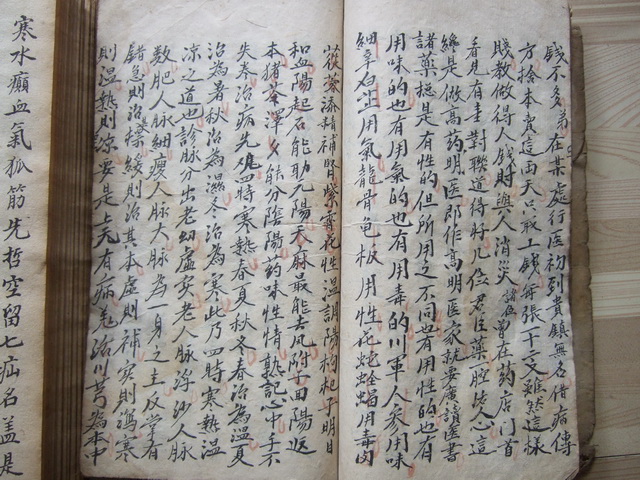 錢不多弟在某處行医初到貴鎮無名借病傳
方捨本賣這两天只取工錢每張十二文雖然這樣
賤教做得人錢財與人消災諸位曾在药店門首
看見有圭對聯這得好几位君臣藥一腔皆人心這
總是做高药明医郎作高明医家就要廣讀医書
諸藥總是有性的但所用之不同也有用性的也有
用味的也有用氣的也有用毒的川軍人参用味
細辛白芷用氣龍骨龟板用性花蛇全蝎用毒肉
苁蓉添精補腎紫霄花性温調陽枸杞子明目
和血陽起石能助元陽天麻最能去风附子回陽返
本猪苓澤夕能分陰陽药味性情熟記心中手不
失岑治病先观四時寒热春夏秋冬春治為温夏
治為暑秋治為濕冬治為寒此乃四時寒热温
凉之道也診脉分出老幼虚实老人脉浮幼人脉
数肥人脉細瘦人脉大脉為一身之主反掌有
錯急則治標緩則治其本虚則補实則瀉寒
則温热則凉要是上天有病鬼治川芎為本中
寒水癲血氣狐筋先哲空留七疝名盖是